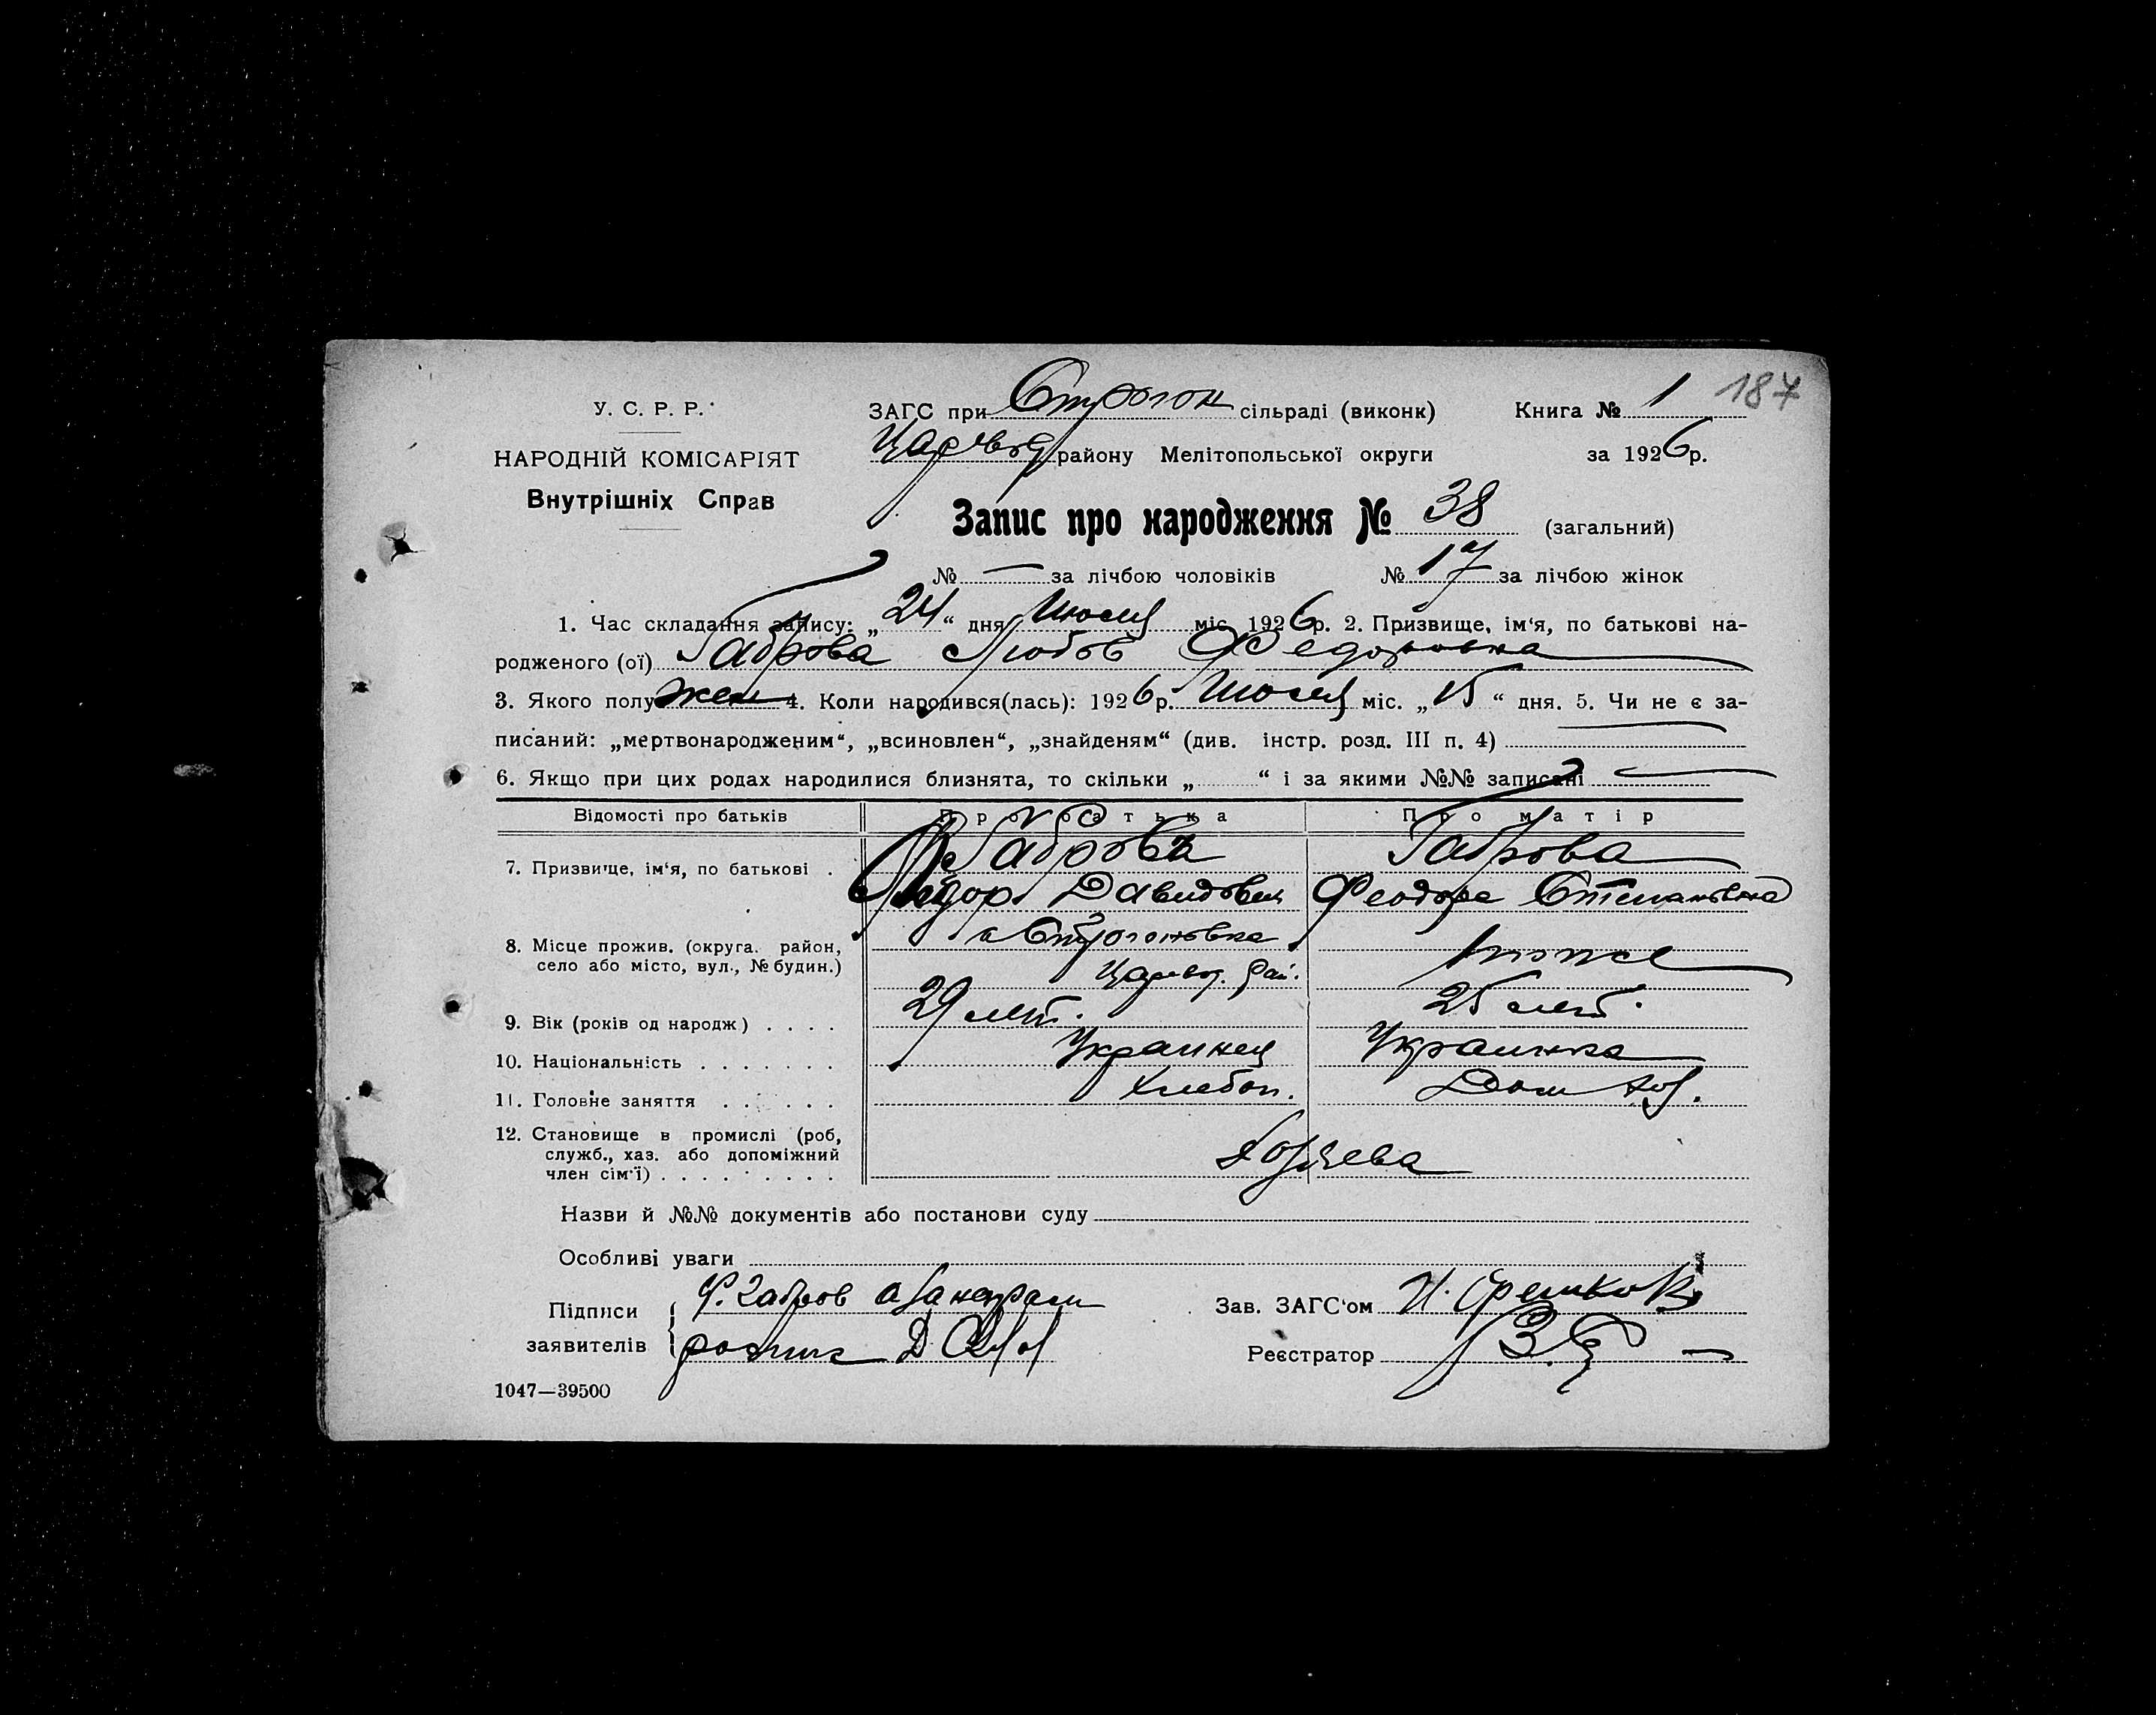 187
У. С. Р. Р.
ЗАГС при Строгон сільраді (виконк) Книга № 1
НАРОДНІЙ КОМІСАРІЯТ
району Мелітопольської округи за 1926 р.
Внутрішніх Справ
Запис про народження № 38 (загальний)
№ — за лічбою чоловіків № 17 за лічбою жінок
1. Час складання запису: „24“ дня міс. 1926 р. 2. Призвище, ім‘я, по батькові на-
родженого (ої) Габрова Любов Федоровна
3. Якого полу жен 4. Коли народився(лась): 1926 р. міс. „15“ дня. 5. Чи не є за-
писаний: „мертвонародженим“, „всиновлен“, „знайденям“ (див. інстр. розд. III п. 4) —
6. Якщо при цих родах народилися близнята, то скільки „ “ і за якими №№ записані —
Відомості про батьків Про батька Про матір
7. Призвище, ім‘я, по батькові .
Габрова
Давидович
Габрова
Феодора Степановна
8. Місце прожив. (округа. район,
село або місто, вул., № будин.)
с Строгоновка
Царевод. рай.
тоже
9. Вік (років од народж) . . . . 29 лет. 25 лет.
10. Національність . . . . . . . Украинец Украинка
11. Головне заняття . . . . . . Хлебоп. Дом хоз.
12. Становище в промислі (роб,
служб., хаз. або допоміжний
член сім‘ї) . . . . . . . . .
Назви й №№ документів або постанови суду
Особливі уваги
Підписи
заявителів
Ф. Габров
Зав. ЗАГС‘ом
Реєстратор
1047—39500